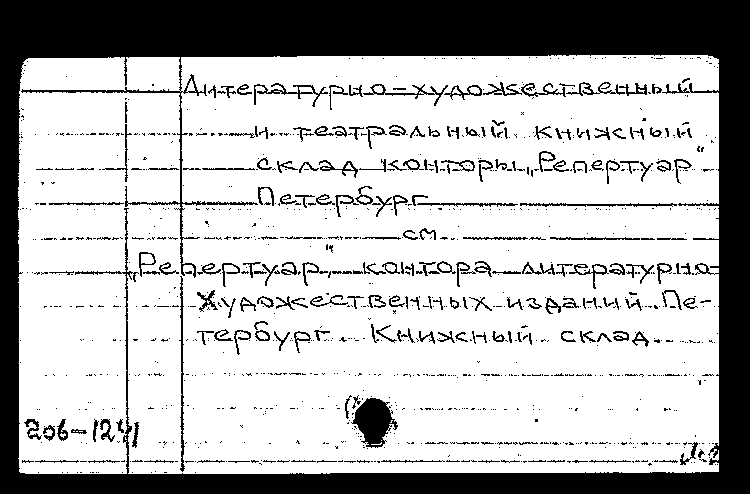 Литературно-художественный
и театральный книжный
склад конторы „Репертуар"
Петербург
см
„Репертуар", контора литературно-
художественных изданий. Пе-
тербург. Книжный склад.
206-1241